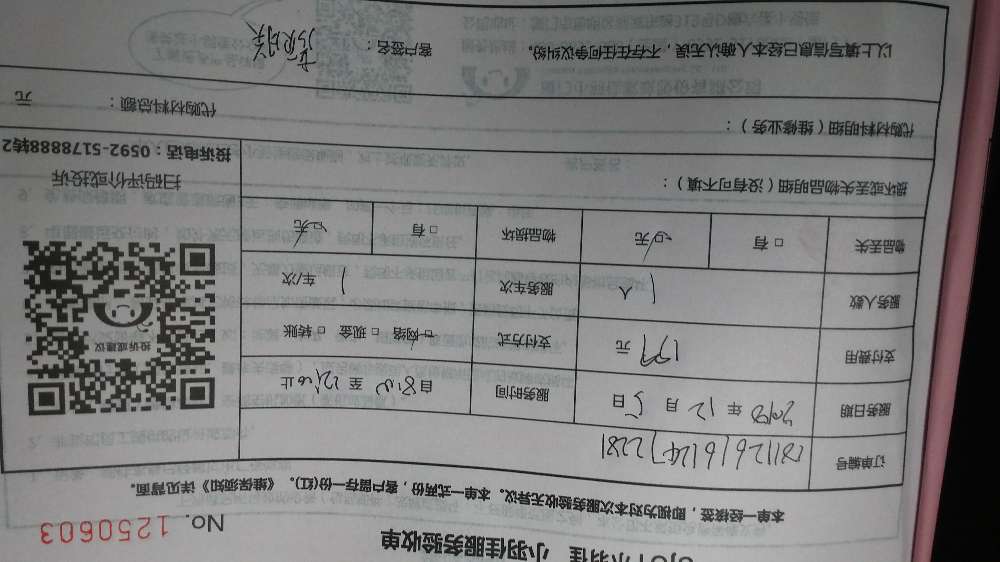 小羽佳 小羽佳服务验收单
No. 1250603
本单一经接签，即视为对本次服务验收无异议。本单一式两份，客户留存一份(红)。《维保须知》详见背面。
订单编号
服务日期 2018 年 12 月 5 日 服务时间 自 8:00 至 12:00 止
支付费用 199 元 支付方式 □ 网络 □ 现金 □ 转账
服务人数 1 人 服务车次 1 车/次
物品丢失 □ 有 □ 无 物品损坏 □ 有 □ 无
投诉或建议
扫码评价或投诉
投诉电话：0592-5178888转2
损坏或丢失物品明细（没有可不填）：
代购材料明细（维修业务）： 代购材料总额： 元
以上填写信息已经本人确认无误，不存在任何争议纠纷。 客户签名：